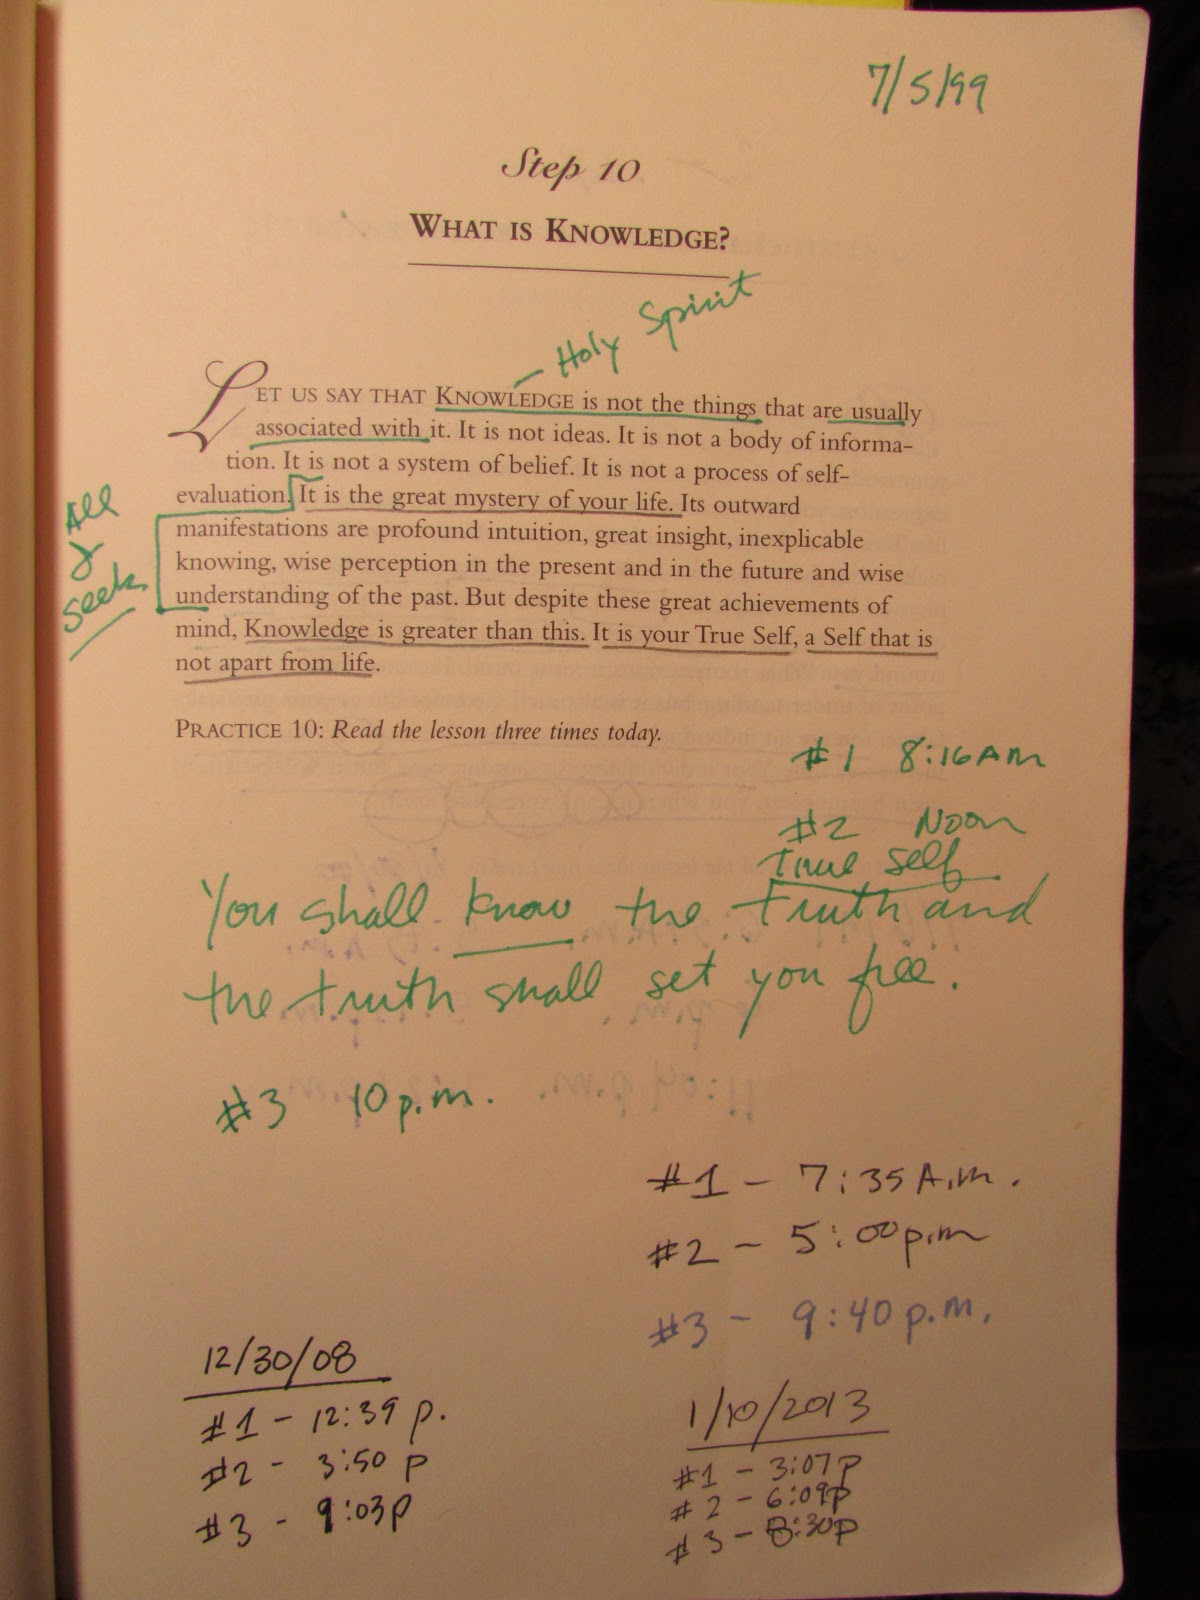 7/5/99
Step 10
WHAT IS KNOWLEDGE?
– Holy Spirit
LET US SAY THAT KNOWLEDGE is not the things that are usually
associated with it. It is not ideas. It is not a body of informa-
tion. It is not a system of belief. It is not a process of self-
evaluation. It is the great mystery of your life. Its outward
manifestations are profound intuition, great insight, inexplicable
knowing, wise perception in the present and in the future and wise
understanding of the past. But despite these great achievements of
mind, Knowledge is greater than this. It is your True Self, a Self that is
not apart from life.
All
I
seek
PRACTICE 10: Read the lesson three times today.
#1 8:16 AM
#2 Noon
True self
You shall know the truth and
the truth shall set you free.
#3 10 p.m.
#1 – 7:35 A.m.
#2 – 5:00 p.m
#3 – 9:40 p.m.
12/30/08
#1 – 12:39 p.
#2 - 3:50 p
#3 - 9:03p
1/10/2013
#1 – 3:07p
#2 – 6:09p
#3 – 8:30p